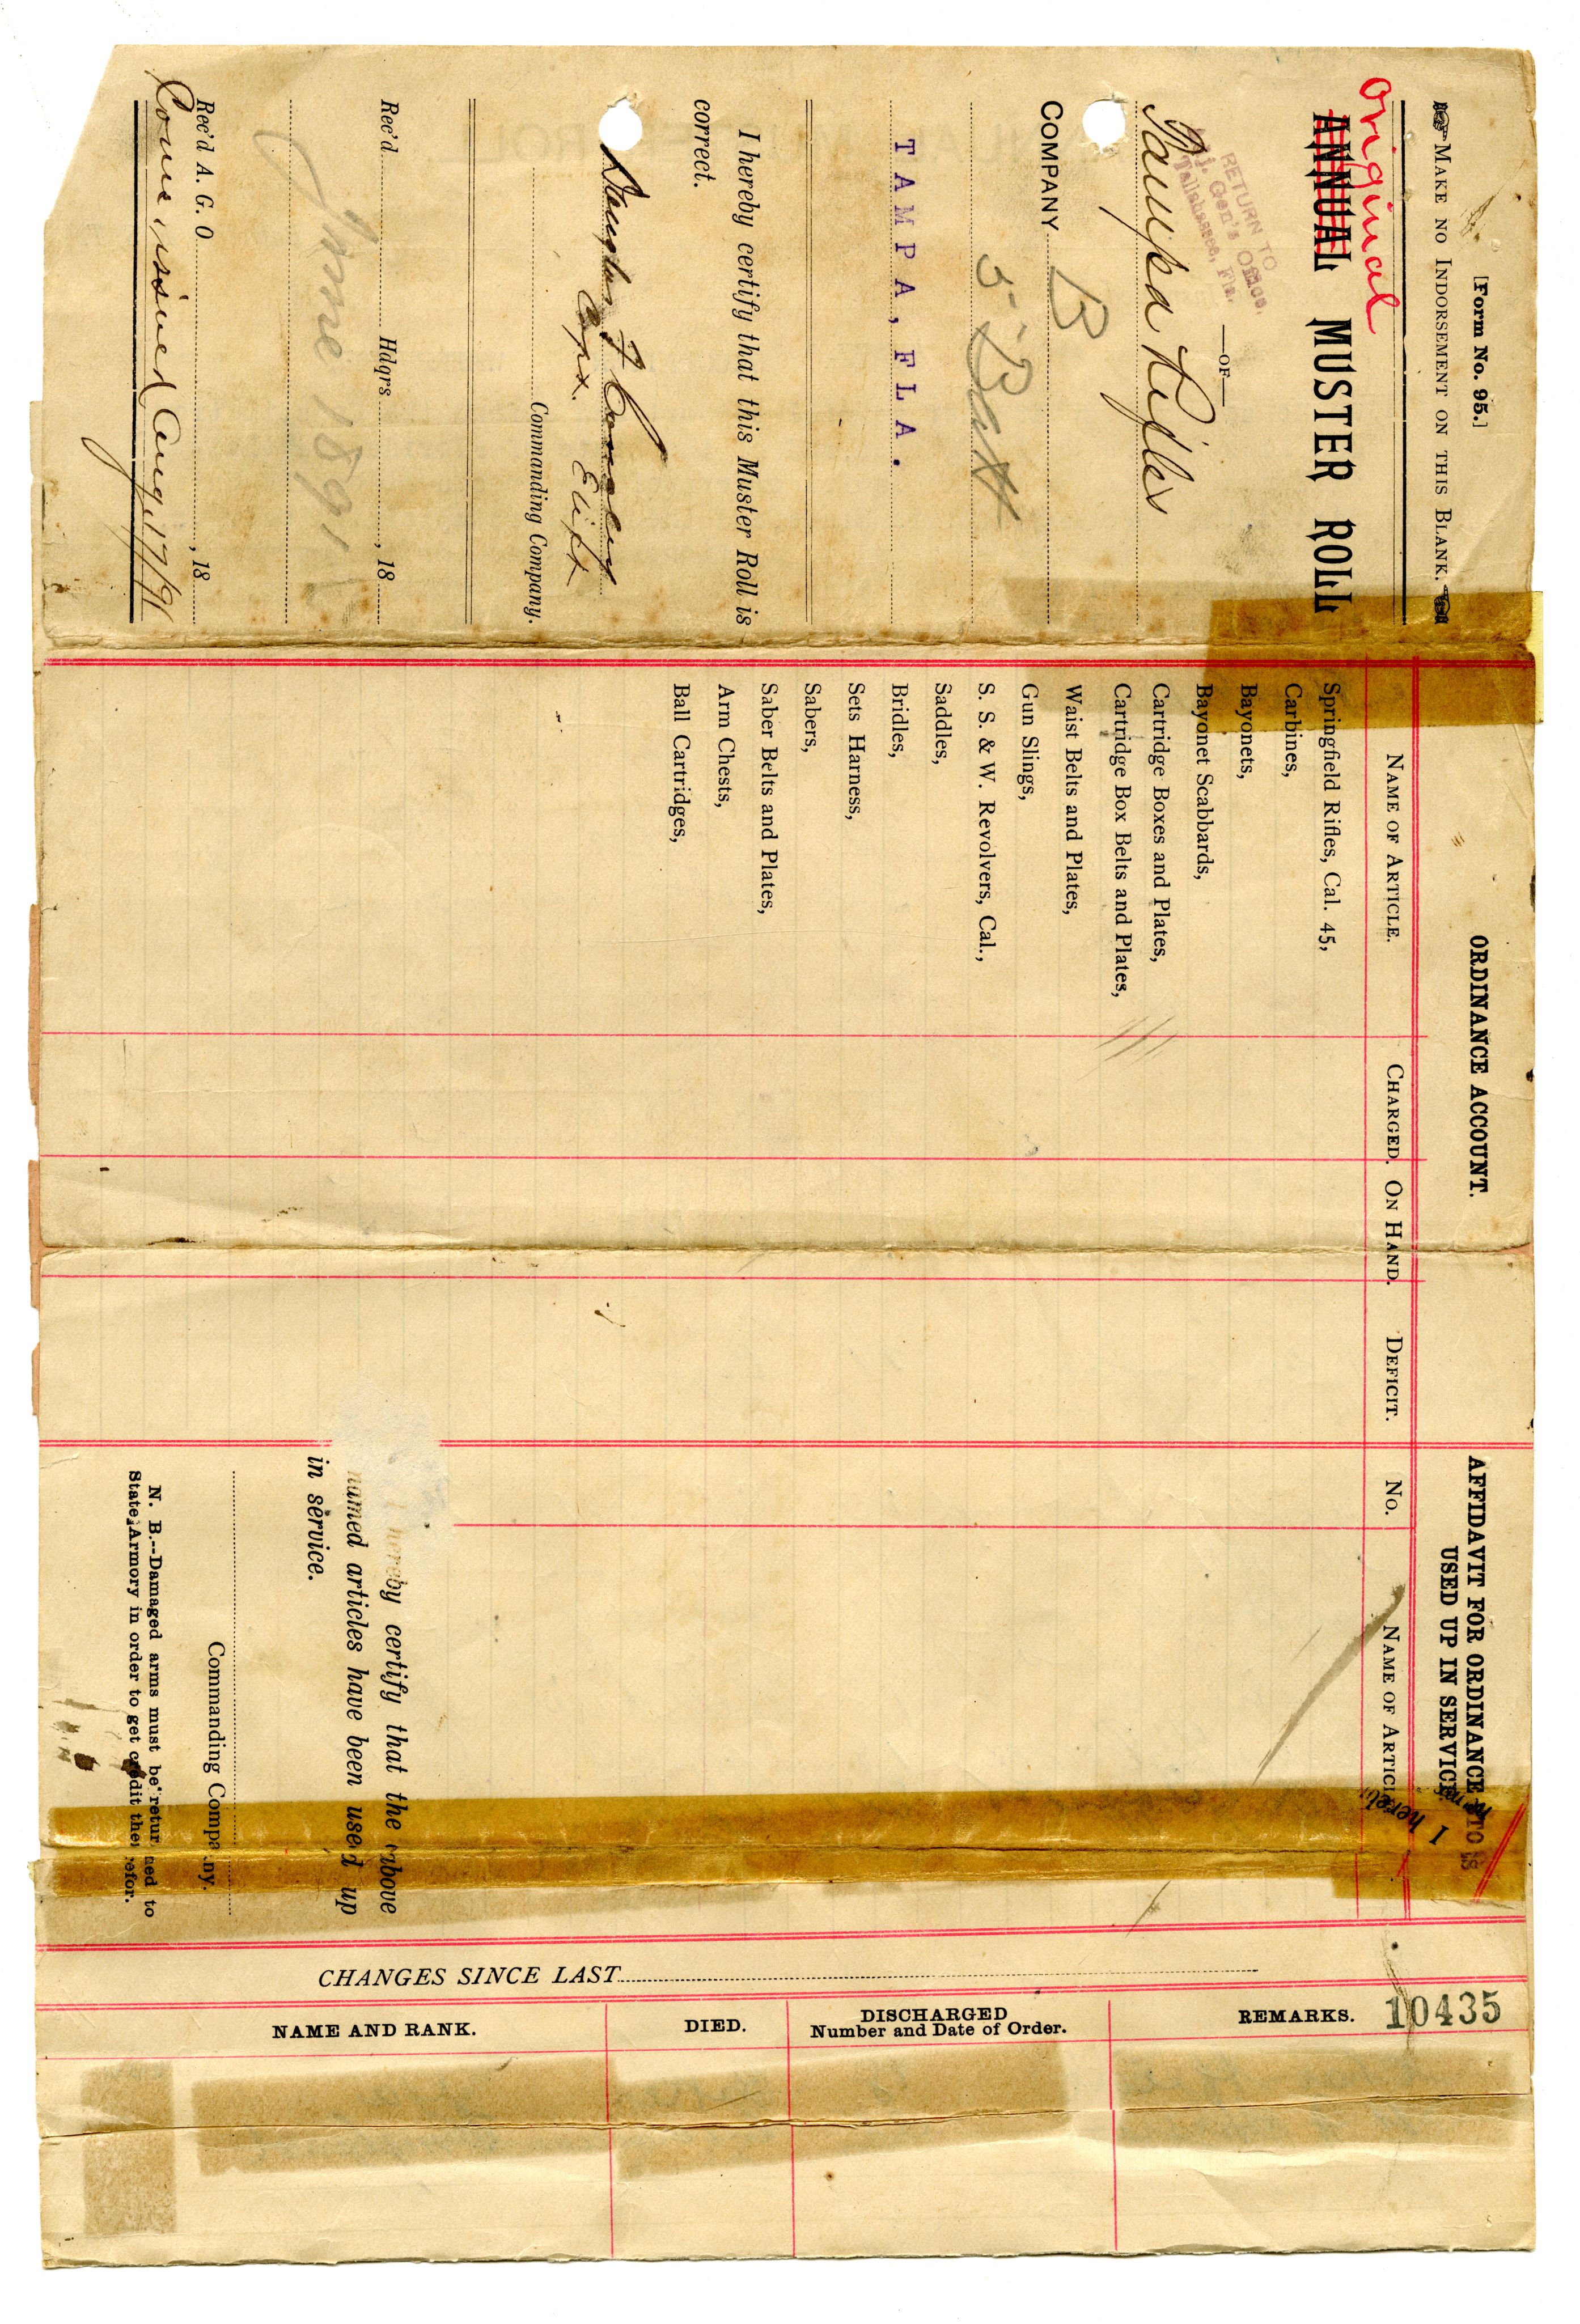 [Form No. 95.]
MAKE NO INDORSEMENT ON THIS BLANK.
Original
ANNUAL MUSTER ROLL
—OF—
RETURN TO
Adj. Gen's Office,
Tallahassee, Fla.
Tampa Rifles
COMPANY B
5" Batt
TAMPA, FLA.
I hereby certify that this Muster Roll is
correct.
Douglas F
Capt. Elect
Commanding Company.
Rec'd Hdqrs , 18
June 1891
Rec'd A. G. O. , 18
Coms. issued Aug. 17/91
ORDINANCE ACCOUNT.
NAME OF ARTICLE. CHARGED. ON HAND. DEFICIT.
Springfield Rifles, Cal. 45,
Carbines,
Bayonets,
Bayonet Scabbards,
Cartridge Boxes and Plates,
Cartridge Box Belts and Plates,
Waist Belts and Plates,
Gun Slings,
S. S. & W. Revolvers, Cal.,
Saddles,
Bridles,
Sets Harness,
Sabers,
Saber Belts and Plates,
Arm Chests,
Ball Cartridges,
AFFIDAVIT FOR ORDINANCE
USED UP IN SERVICE
No. NAME OF ARTICL
I hereb
hereby certify that the above
named articles have been used up
in service.
Commanding Company.
N. B.--Damaged arms must be returned to
State Armory in order to get credit therefor.
CHANGES SINCE LAST
NAME AND RANK. DIED. DISCHARGED REMARKS. 10435
Number and Date of Order.